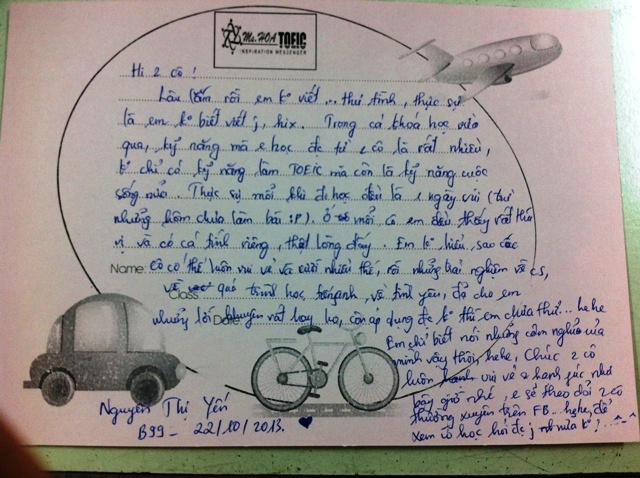 Ms. HOA TOEIC
INSPIRATION MESSENGER
Hi 2 cô!
Lâu lắm rồi em k° viết ... thư tình, thực sự
là em k° biết viết j, hix. Trong cả khoá học vừa
qua, kỹ năng mà e học đc từ 2 cô là rất nhiều,
k° chỉ có kỹ năng làm TOEIC mà còn là kỹ năng cuộc
sống nữa. Thực sự mỗi khi đi học đều là 1 ngày vui (trừ
những hôm chưa làm bài :P). Ở mỗi cô em đều thấy rất thú
vị và có cá tính riêng, thật lòng đấy. Em k° hiểu sao các
Name: cô có thể luôn vui vẻ và cười nhiều thế, rồi những trải nghiệm về cs,
Class về quá trình học tiếng anh, về tình yêu, đã cho em
những lời Date: khuyên rất hay ho, còn áp dụng đc k° thì em chưa thử... hehe
Em chỉ biết nói những cảm nghĩ của
mình vậy thôi, hehe, Chúc 2 cô
luôn vui vẻ & hạnh phúc như
bây giờ nhé, e sẽ theo dõi 2 cô
thường xuyên trên FB... hehe, để
xem có học hỏi đc j nữa k°! ... ^-^
Nguyễn Thị Yến
B99 - 22/10/2013. ♥